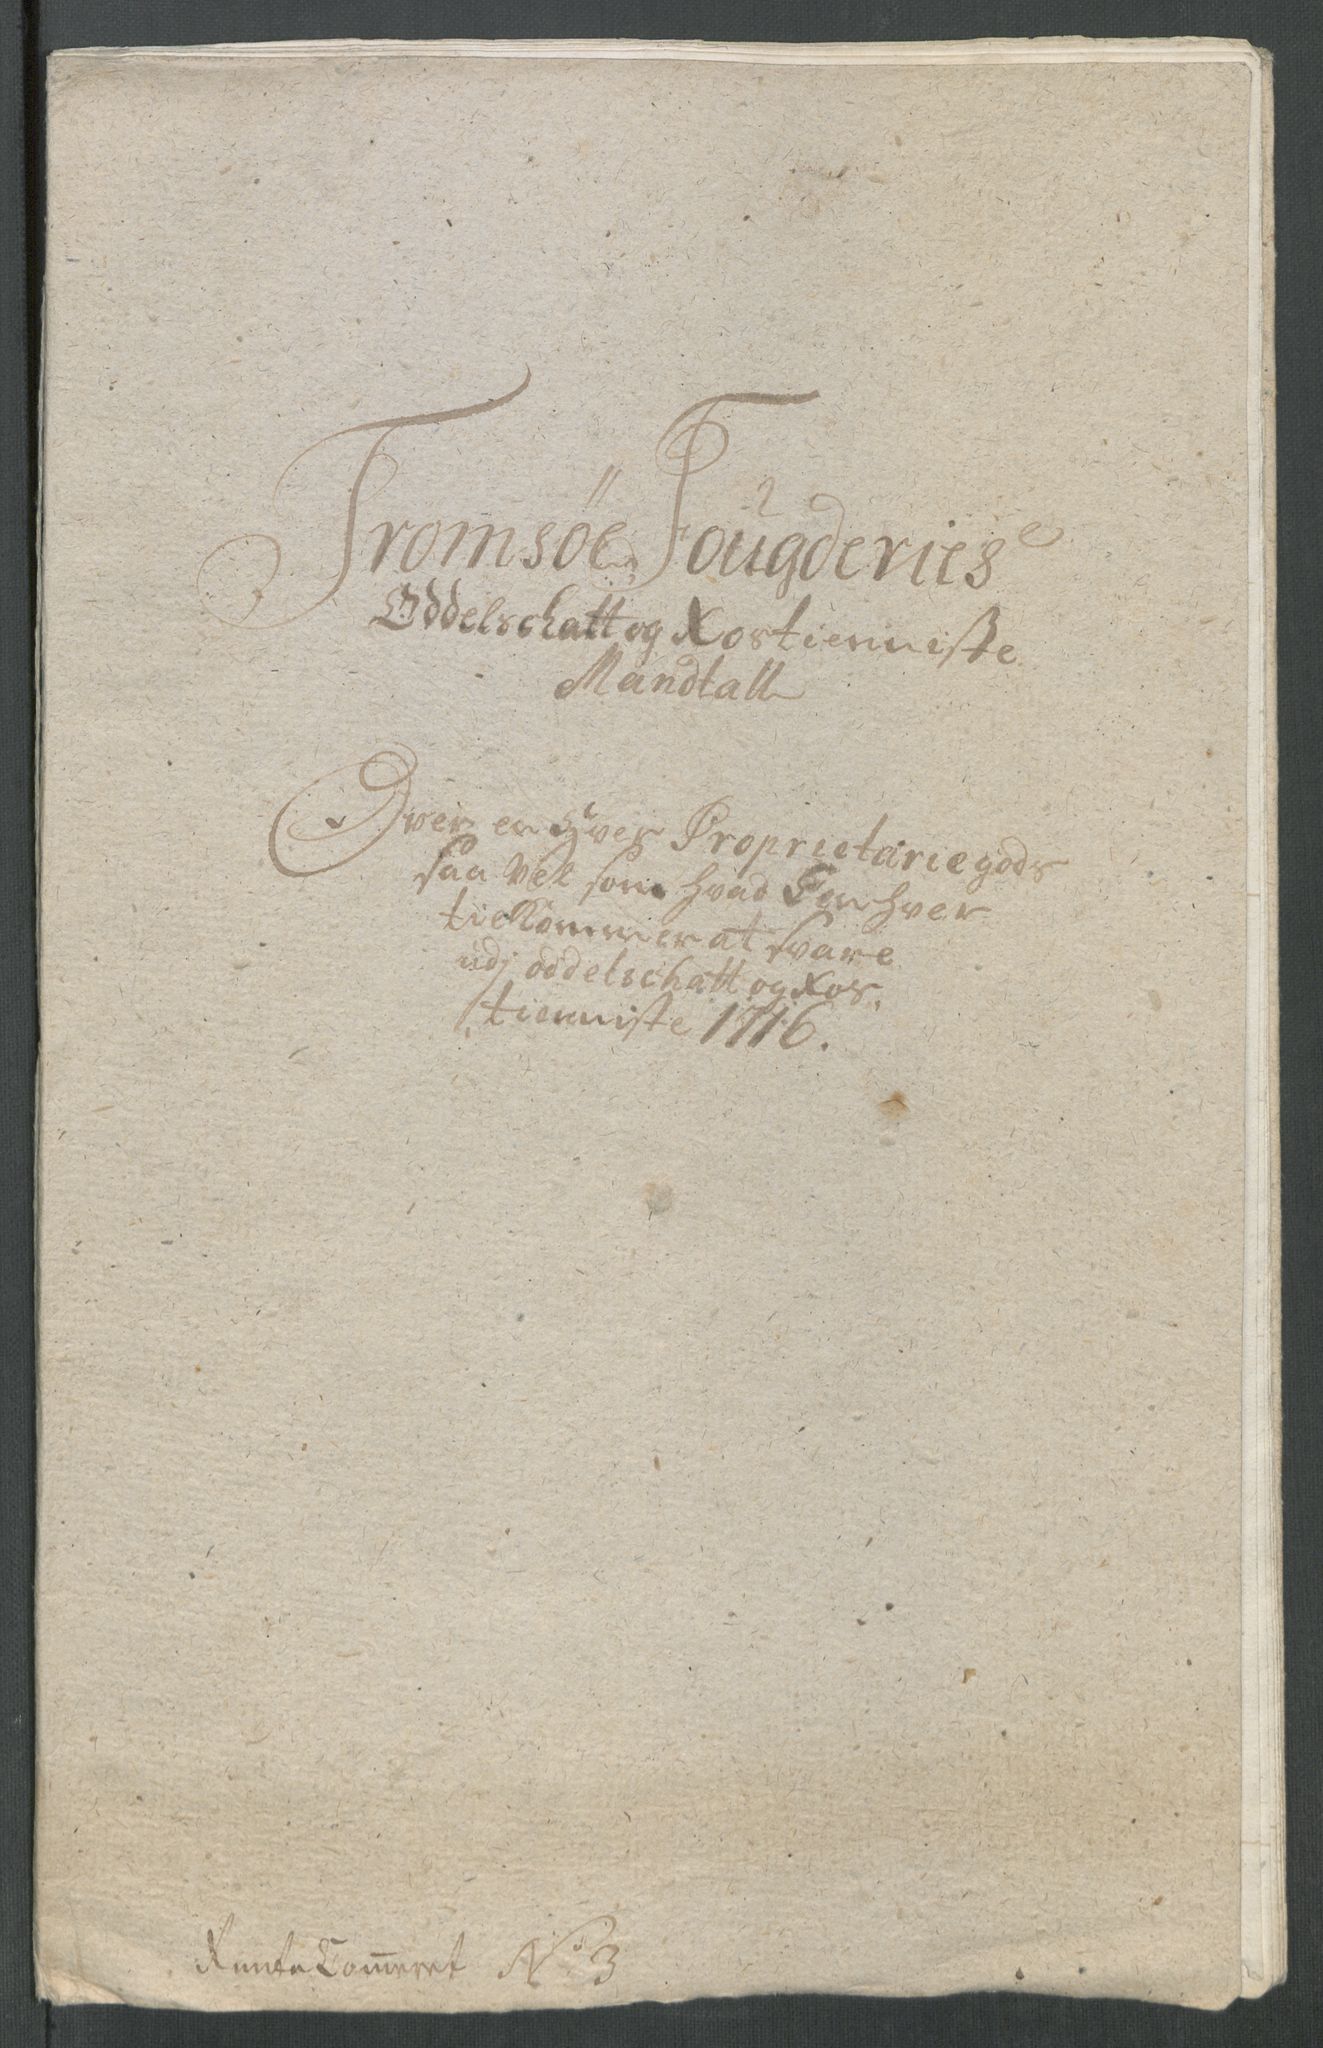 Tromsöe Fougderies
Oddelschatt og Rostienniste
Mandtall
Over en hver Proprietariegods
saa vel som hvad Een hver
tilkommer at svare
udj oddelschatt og Ros,
tienniste 1716.
Rente Cam̄eret No 3